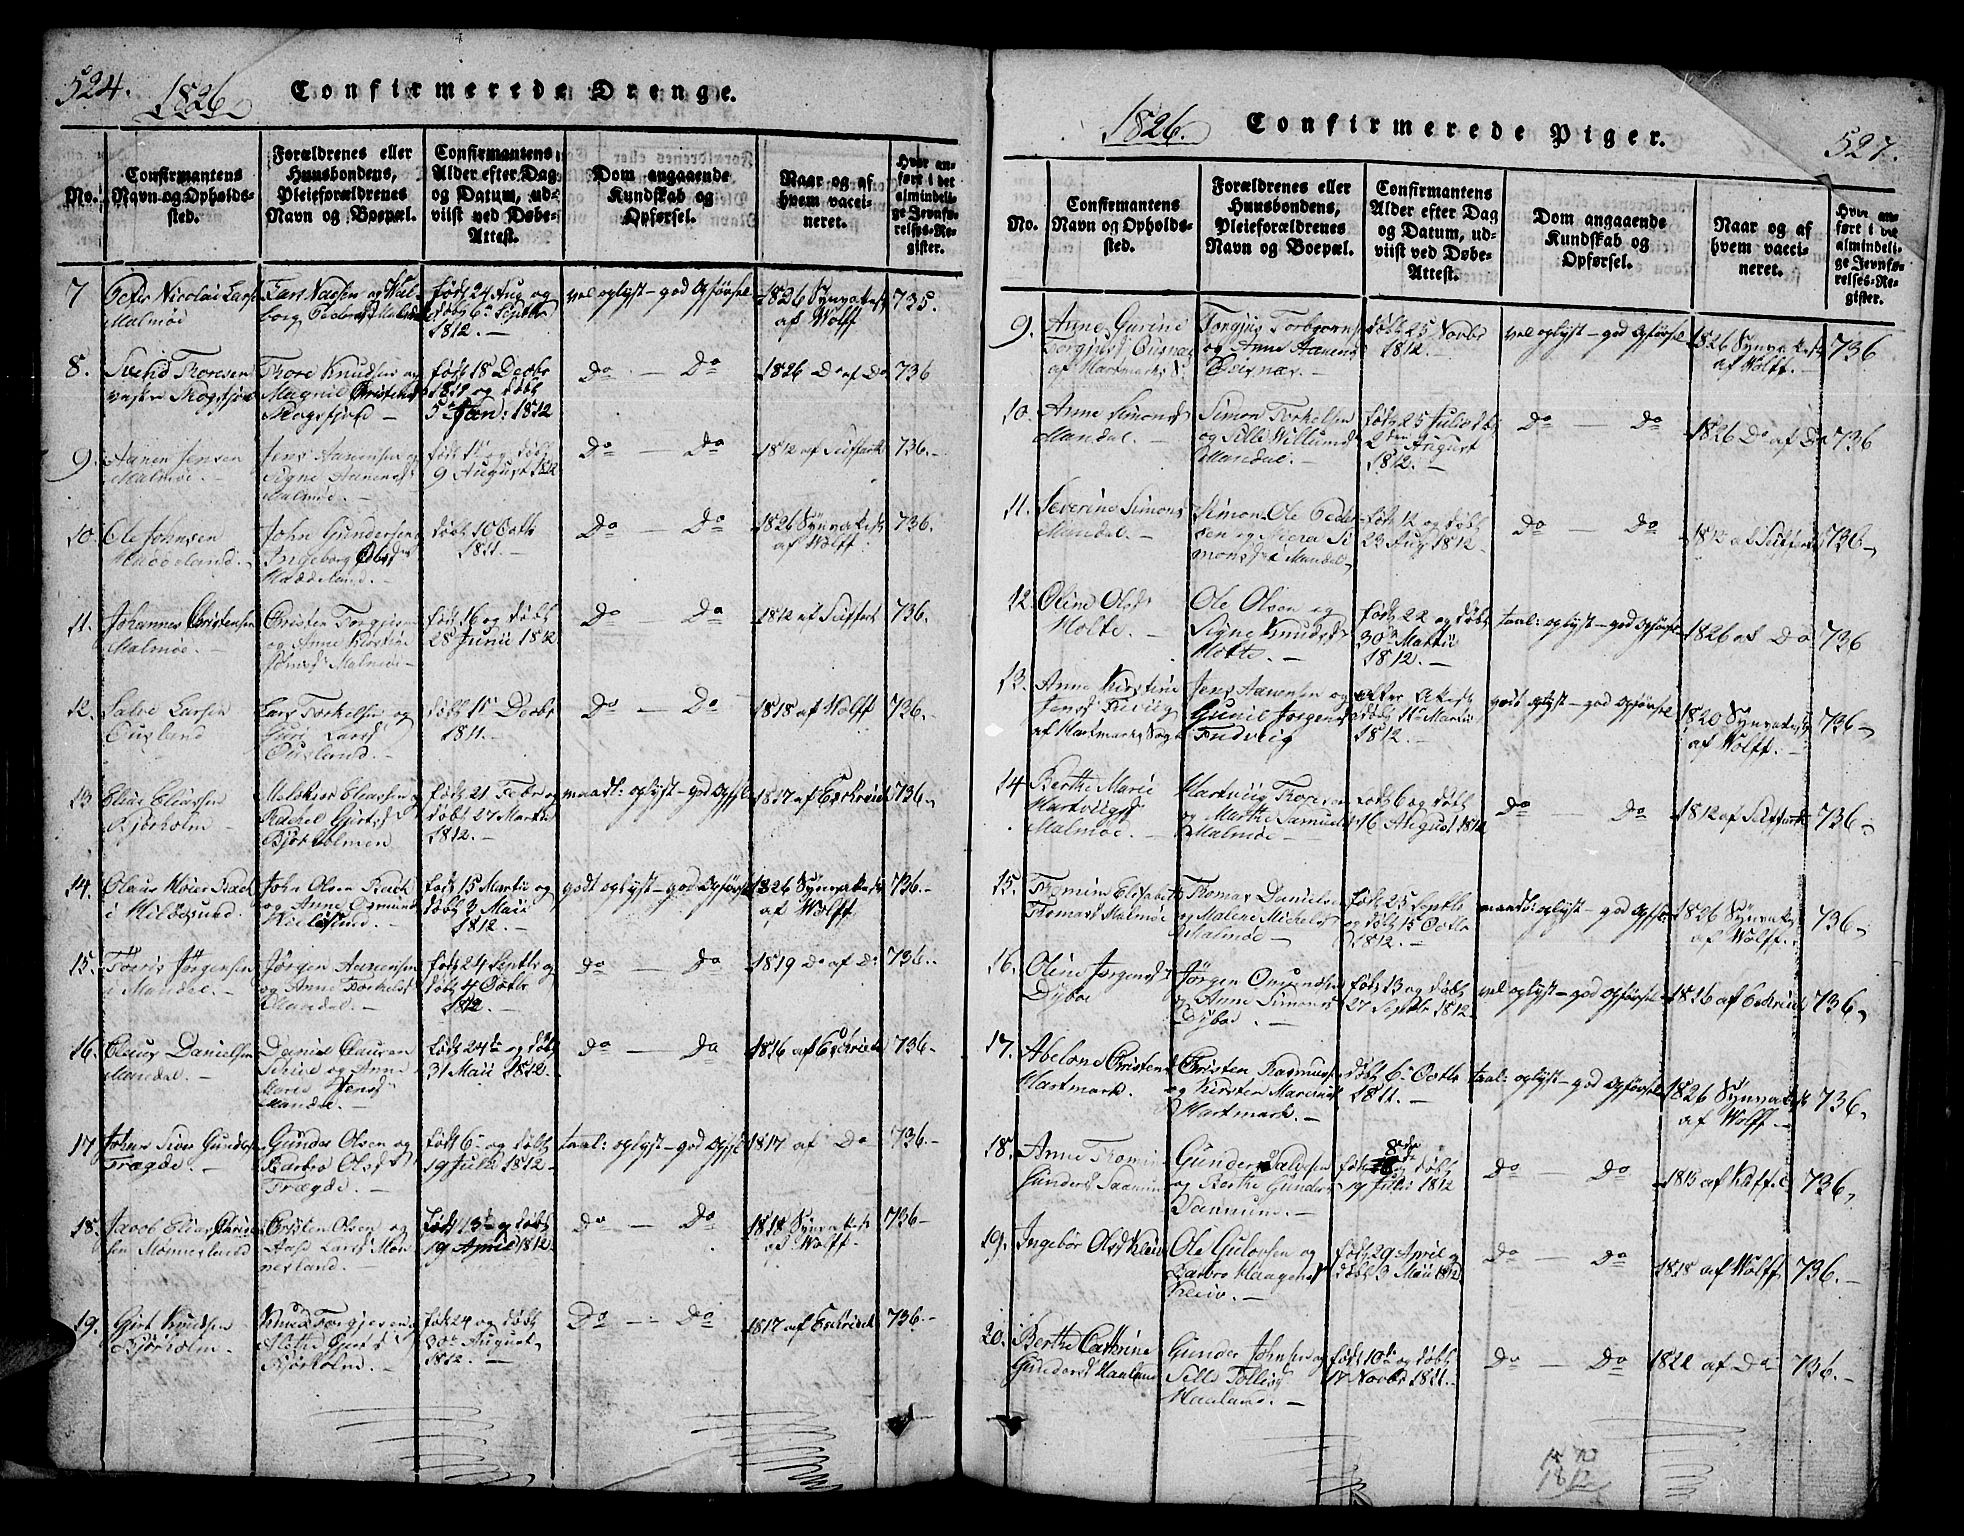 524. 1826 Confirmerede Drenge.
No.
Confirmantens
Navn og Opholds-
sted.
Forældrenes eller
Huusbondens,
Pleieforældrenes
Navn og Boepæl.
Confirmantens
Alder efter Dag
og Datum, ud-
viist ved Døbe-
Attest.
Dom angaaende
Kundskab og
Opførsel.
Naar og af
hvem vacci-
neret.
Hvor an-
ført i det
almindeli-
ge Jevnfø-
relses-Re-
gister.
7 Peder Nicolai Lars
Malmöe
Lars Nassen og Wal-
borg Peders Malmöe
född 24 Aug og
döbt 6 Septbr
1812.
vel oplyst – god Opförsel
1826 Synvakest
af Wolff
735.
8. Svend Thoresen
Skogsfjord
Thore Knudsen og
Magnil Christens
Skogsfjord
föd 18 Decbr
1811 og döbt
5 Jan: 1812
Do — Do
1826 Do af Do
736
9. Aanen Jensen
Malmöe. –
Jens Aanensen og
Signe Aanens
Malmöe. –
föd 1 og döbt
9 August 1812
Do — Do
1812 af Seiffart
736.–
10. Ole Johnsen
John Gundersen
Ingeborg Olsd
döbt 10 Octbr
1811.
Do — Do
1826 Synvakest
af Wolff
736.
11. Johannes Christensen
Malmöe. –
Christen Torgjusen
og Anne Kirstine
Malmöe –
föd 16 og döbt
28 Junii 1812
Do — Do
1812 af Seiffart
736.
12. Salve Larsen
Ousland
Lars Torkelsen og
Guri Larsd
Ousland. –
döbt 15 Decbr
1811. –
Do — Do
1818 af Wolff
736.–
13 Elias Eliassen
Bjørholm –
Melchior Eliassen og
Rachel Girtsd
Bjørholmen
föd 21 Febr og
döbt 27 Martii
1812. –
maadl: oplyst – god Opfsl
1817 af Eschricht
736.–
14. Claus Moier Back
i Kilödsund. –
John Olsen Back
og Anne Osmunds
Keilösund. –
föd 15 Martii og
döbt 3 Maii
1812. –
godt oplyst – god Opförsel
1826 Synvakest
af Wolff
736.–
15. Töeris Jörgensen
i Mandal. –
Jörgen Aanensen
og Anne Torkelsd
Mandal. –
föd 24 Septbr og
döbt 4 Octbr
1812
Do — Do
1819 Do af Do
736.–
16. Claus Danielsen
Mandal. –
Daniel Clausen
og Anne
Marie Jensd
Mandal. –
föd 24de og döbt
31 Maii 1812.
Do — Do
1816 af Eschricht
736.–
17 Johan Gunders
Trægde. –
Gunder Olsen og
Barbro Olsd
Trægde. –
föd 6 og döbt
19 Julii 1812. –
taal: oplyst – god Opfsl
1817 af Do
736.–
18. Jacob Elias Christen-
sen Monnesland
Christen Olsen og
Aase Larsd Mon-
nesland. –
föd 13de og döbt
19 April 1812. –
Do — Do
1818 Synvakest
af Wolff. –
736–
19. Girt Knudsen
Bjørholm. –
Knud Torgjersen og
Alethe Gjerts
Bjørholm. –
föd 24 og döbt
30te August
1812. –
Do — Do
1817 af Eschricht
736.–
1826. Confirmerede Piger. 527.
No.
Confirmantens
Navn og Opholds-
sted.
Forældrenes eller
Huusbondens,
Pleieforældrenes
Navn og Boepæl.
Confirmantens
Alder efter Dag
og Datum, ud-
viist ved Døbe-
Attest.
Dom angaaende
Kundskab og
Opførsel.
Naar og af
hvem vacci-
neret.
Hvor an-
ført i det
almindeli-
ge Jevnfø-
relses-Re-
gister.
9. Anne Gurine
Torgjusd Busnæs
af Hartmarks S.
Torgjus Torbjørns
og Anne Aanens
Buesnæs. –
döbt 25 Novbr
1812. –
vel oplyst – god Opförsel
1826 Synvakest
af Wolff. –
736
10. Anne Simonsd
Mandal. –
Simon Torkelsen
og Sille Willumsd
Mandal. –
föd 25 Julii döbt
2den August
1812. –
Do — Do
1826 Do af Do
736
11. Severine Simons
Mandal. –
Simon Ole Peder-
sen og Si-
monsd i Mandal,
föd 12 og döbt
23 Aug 1812.
Do — Do
1812 af Seiffart
736 –
12. Oline Olsd
Holte. –
Ole Olsen og
Signe Knudsd
Holte. –
föd 22 og döbt
30 Martii
1812. –
taal: oplyst – god Opförsel
1826 af Do
736
13. Anne Kirstine
Jensd
af Hartmarks Sogn
Jens Aanensen og
Gunil Jorgensd
efter Attest
döbt 11 Martii
1812. –
godt oplyst – god Opförsel
1820 Synvakest
af Wolff. –
736 –
14 Berthe Marie
Hartvigsd
Malmöe. –
Hartvig Thoresen
og Marthe Samuelsd
Malmöe –
föd 6 og döbt
16 August 1812
Do — Do
1812 af Seiffart
736 –
15. Thomine Elisabeth
Thomasd Malmöe
Thomas Danielsen
og Malene Michelsd
Malmöe –
föd 25 Septbr
og döbt 15 Octbr
1812. –
maadl: oplyst – god Opfsl
1826 Synvakest
af Wolff. –
736 –
16. Oline Jorgensd
Dyboe
Jörgen Omundsen
og Anne Simons
Dyboe. –
föd 13 og döbt
27 Septbr 1812. –
vel oplyst – god Opförsel
1816 af Eschricht
736 –
17. Abelone Christens
Hartmark. –
Christen Rasmuss
og Kirsten
Hartmark. –
döbt 6 Octbr
1811. –
taal: oplyst – god Opförsel
1826 Synvakest
af Wolff –
736 –
18. Anne Thomine
Gunders Saanum
Gunder Salvesen
og Berthe Gunders
Saanum. –
föd 8de og döbt
19 Julii 1812
Do — Do
1813 af Kaffel
736 –
19. Ingebör Olsd Kleiv
Ole Gulovsen og
Barbro Haagensd
Kleiv. –
föd 29 April og
döbt 3 Maii 1812
Do — Do
1818 af Wolff
736. –
20. Berthe Cathrine
Gundersd Haaland
Gunder Johnsen og
Sille Tollisd
Haaland. –
föd 10de og döbt
17 Novbr 1811. –
Do — Do
1822 af Do
736. –
1812